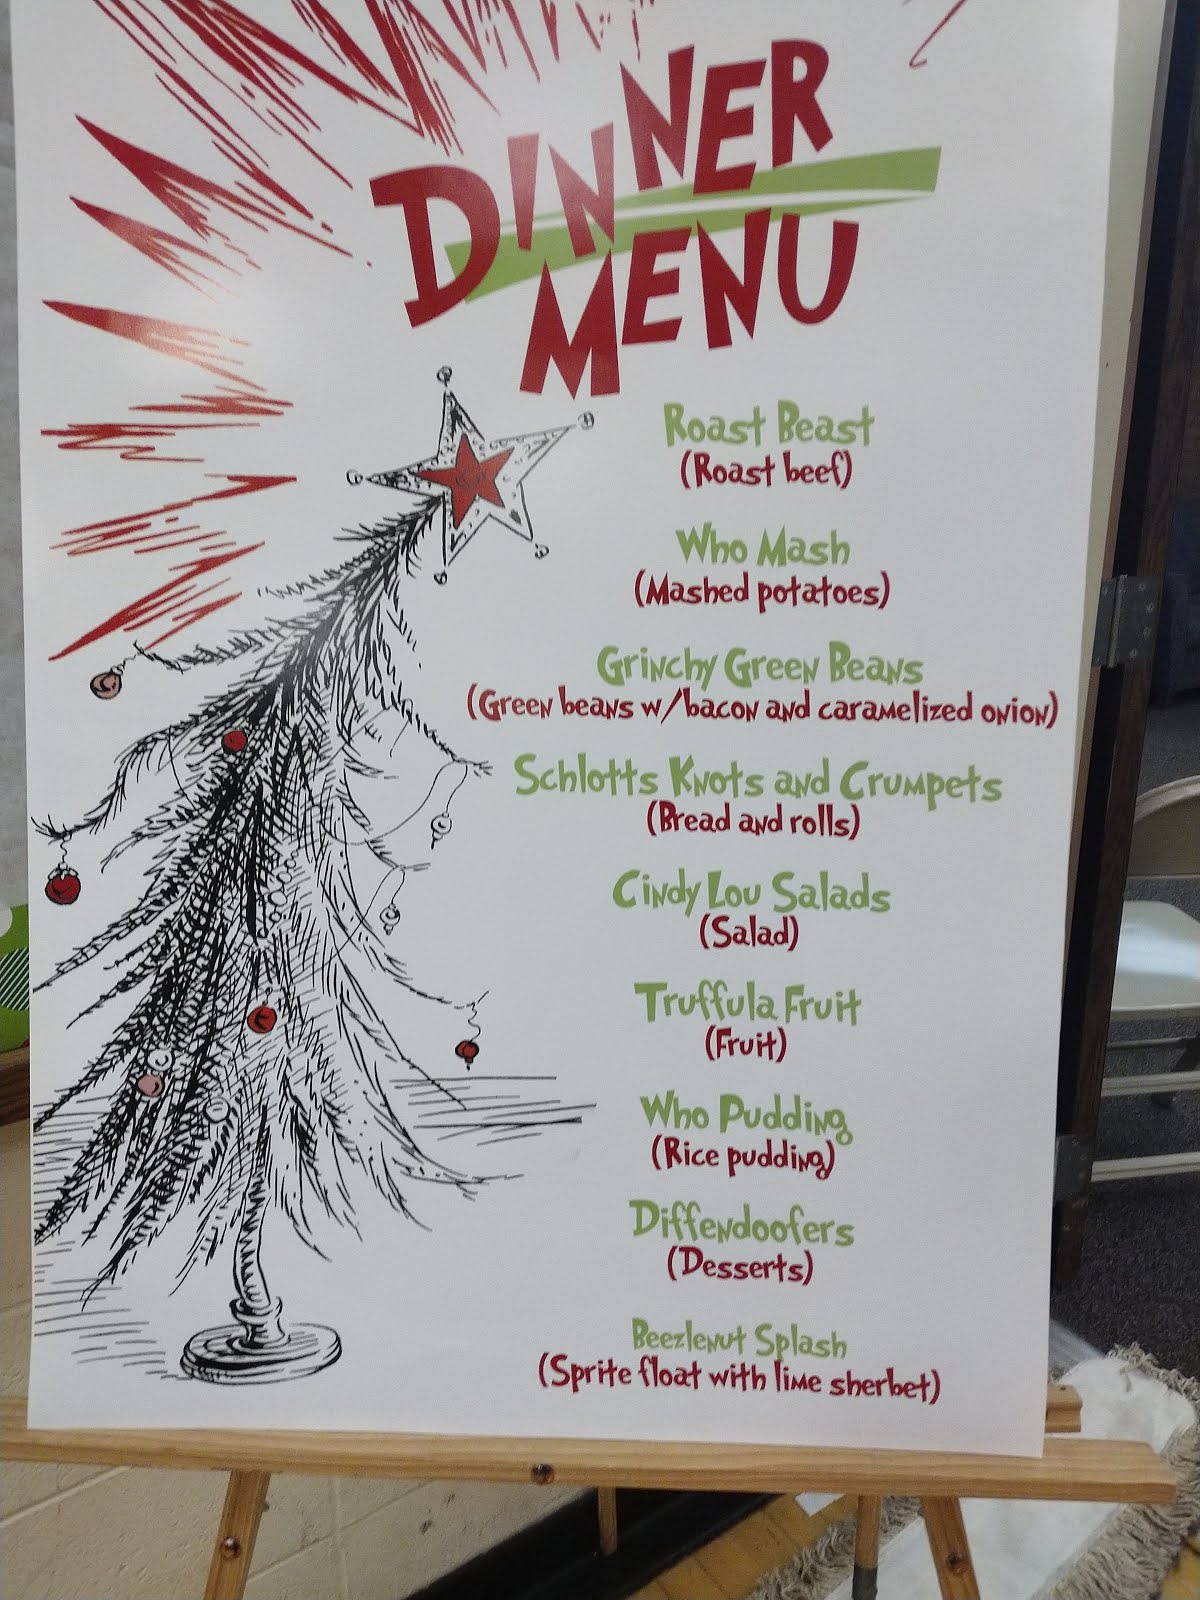 DINNER
MENU
Roast Beast
(Roast beef)
Who Mash
(Mashed potatoes)
Grinchy Green Beans
(Green beans w/bacon and caramelized onion)
Schlotts Knots and Crumpets
(Bread and rolls)
Cindy Lou Salads
(Salad)
Truffula Fruit
(Fruit)
Who Pudding
(Rice pudding)
Diffendoofers
(Desserts)
Beezlenut Splash
(Sprite float with lime sherbet)